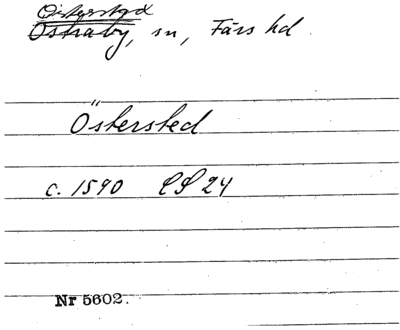 Östraby, sn, Färs hd.
Östersted
c. 1590 LS 24
Nr 5602.